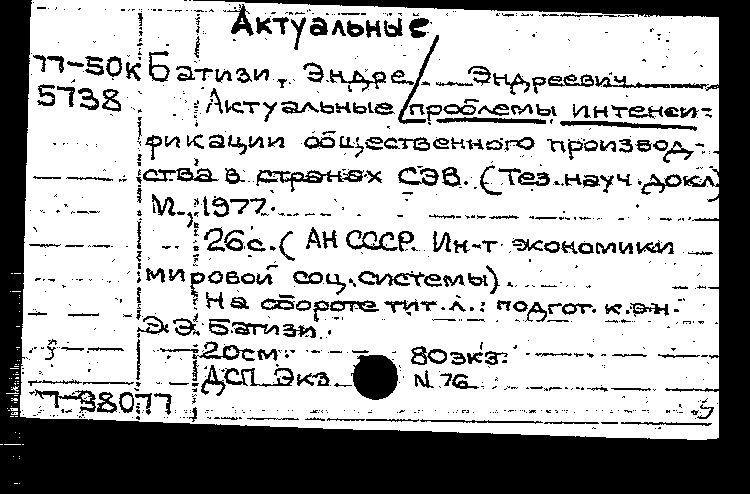 Актуальные
77-50к Батизи, Эндре Эндреевич
5738 Актуальные проблемы интенси-
фикации общественного производ-
ства в странах СЭВ. (Тез. науч. докл)
М., 1977.
26с. (АН СССР. Ин-т экономики
мировой соц. системы).
На обороте тит. л.: подгот. к.э.н.
Э.Э. Батизи.
20см. 80экз.
ДСП Экз. N 76
7-38077